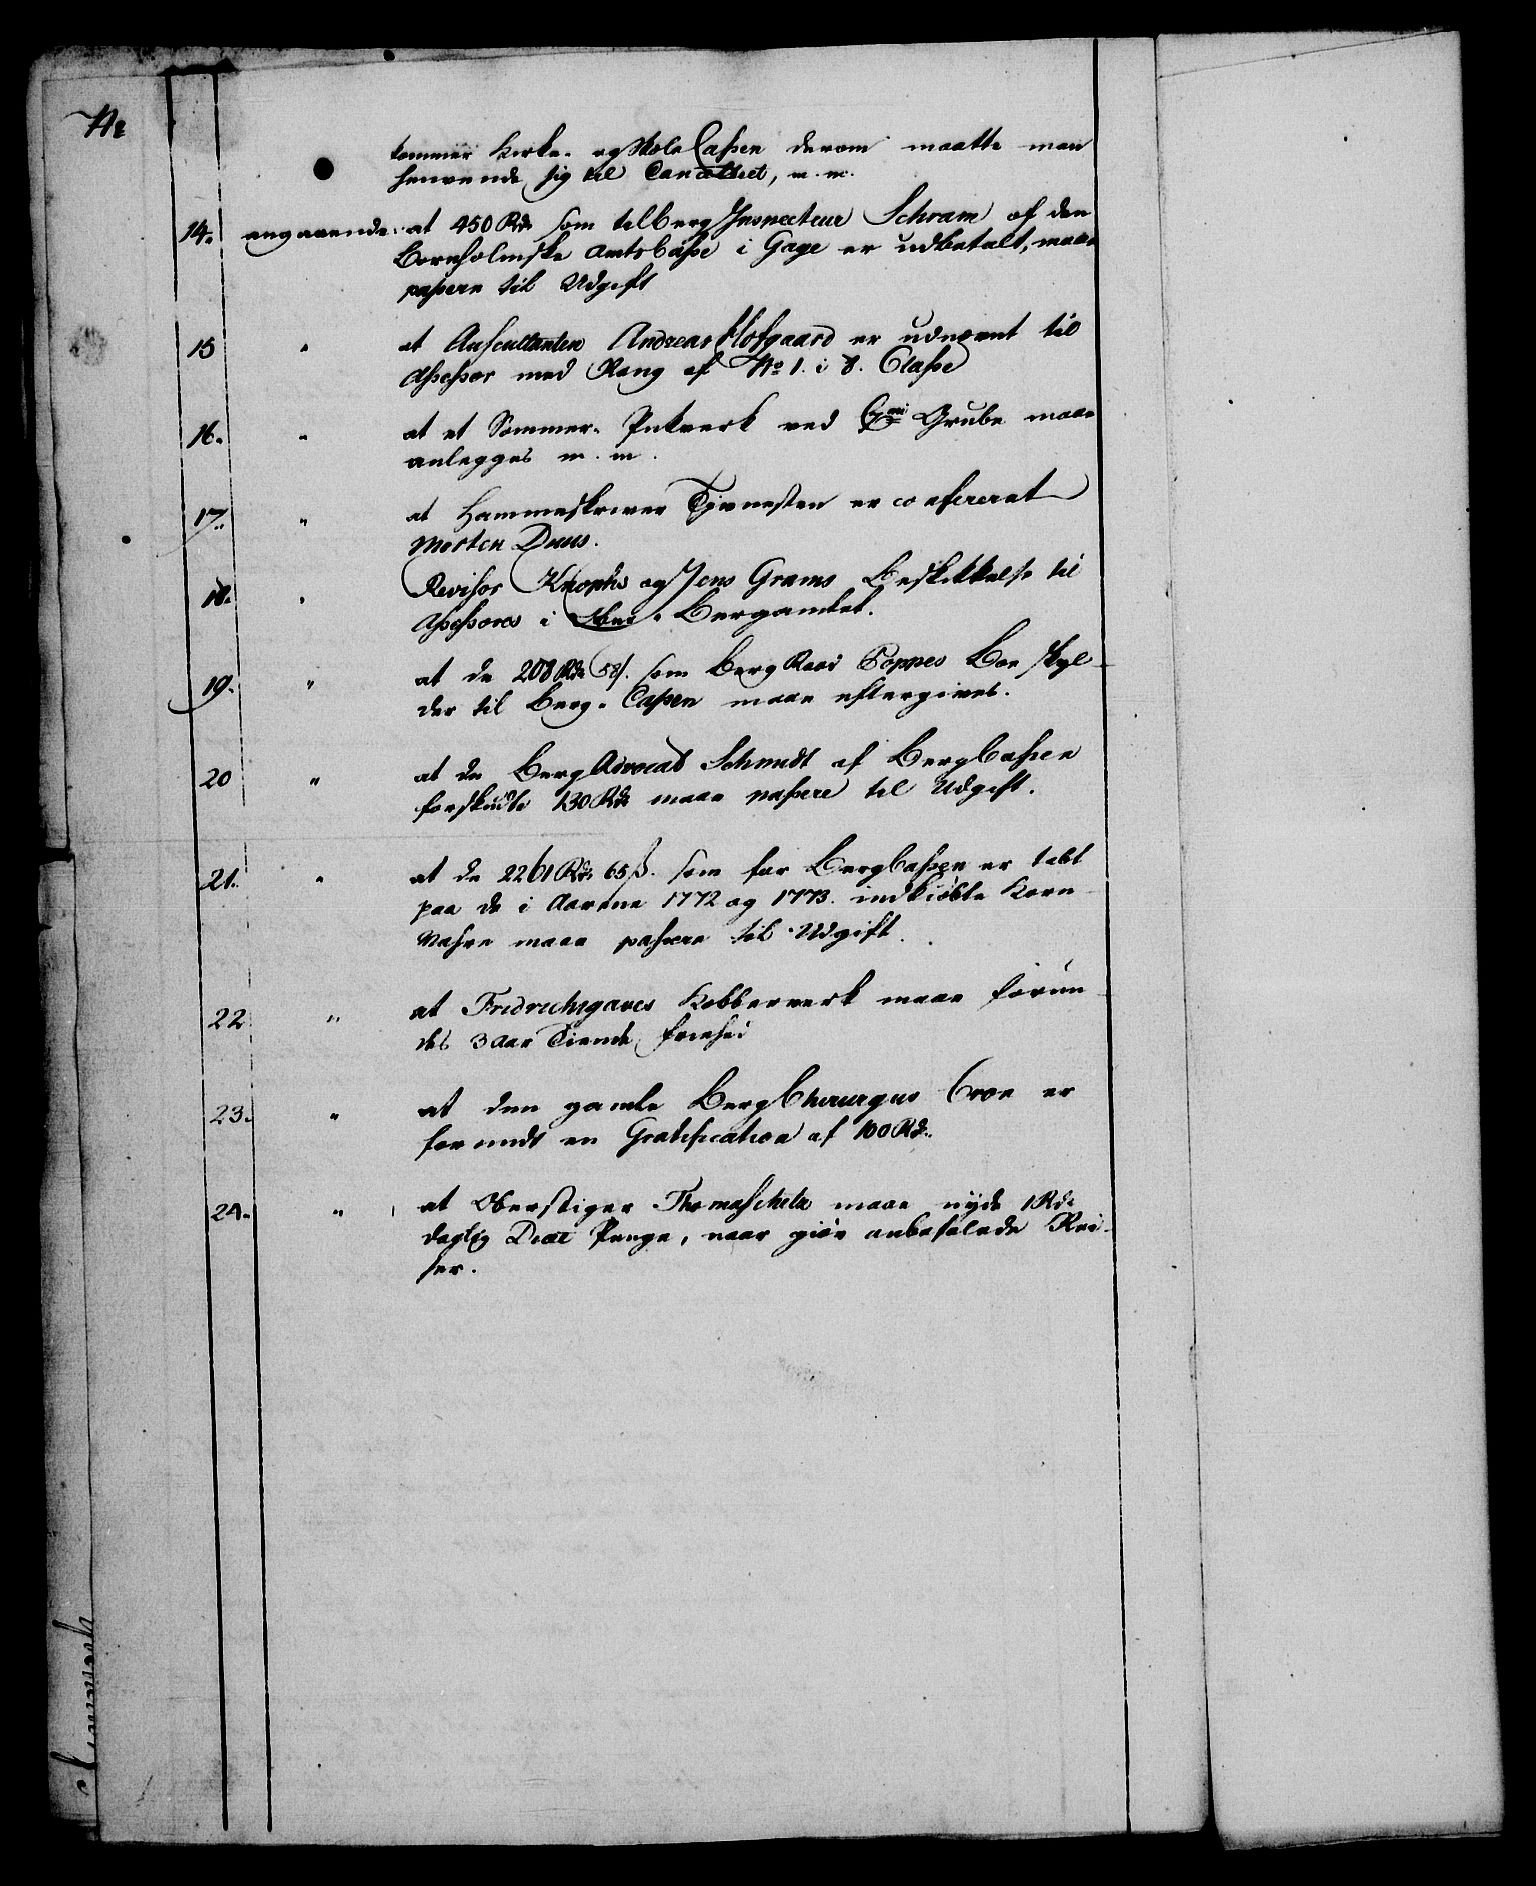 kommer Kirke- og Skole Cassen derom maatte man
henvende sig til Cancelliet, m. m.
14. angaaende at 450 Rdr som til Berg Inspecteur Schram af den
Bornholmske Amts Casse i Gage er udbetalt, maae
passere til Udgift
15 " at Auscultanten Andreas Hofgaard er udnævnt til
Assessor med Rang af No 1. i 8. Classe
16. " at et Sommer- Pukverk ved Grube maae
anlegges m. m.
17. " at Hammerskriver Tienesten er confereret
Morten Duus.
18. " Revisor Knophs og Jens Grams Beskikkelse til
Assessores i Ober- Bergamtet.
19. " at de 208 Rdr 58 s. som Berg Raad Poppes Boe skyl-
der til Berg- Cassen maae eftergives.
20 " at de Berg Advocat Schmidt af Berg Cassen
forskudte 130 Rdr maae passere til Udgift.
21. " at de 2261 Rdr 65 ß. som for Berg Cassen er tabt
paa de i Aarene 1772 og 1773. indkiøbte Korn
Vahre maae passere til Udgift.
22 " at Fredrichsgaves Kobberverk maae forun-
des 3 Aar Tiende frihed
23. " at den gamle Berg Chirurgus Croe er
forundt en Gratification af 100 Rd.
24. " at Oberstiger Thomaschek maae nyde 1 Rdr
daglig Diæt Penge, naar giør anbefalede Rei-
ser.